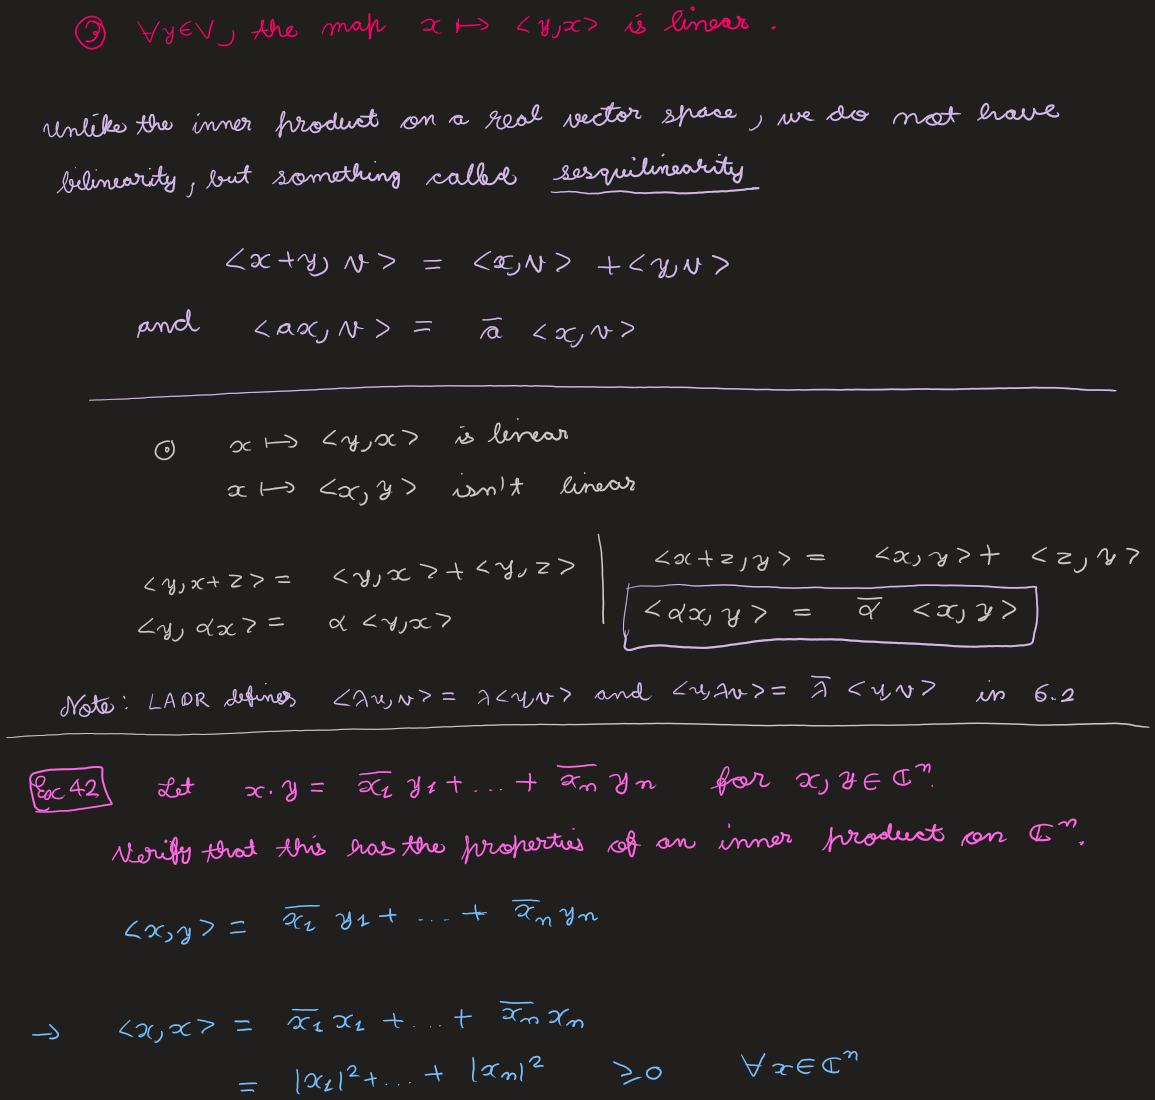 ③ ∀y∈V, the map x ↦ <y,x> is linear.
Unlike the inner product on a real vector space, we do not have
bilinearity, but something called sesquilinearity
<x+y, v> = <x,v> + <y,v>
and <ax, v> = a̅ <x,v>
⊙ x ↦ <y,x> is linear
x ↦ <x,y> isn't linear
<y,x+z> = <y,x> + <y,z>
<y, αx> = α <y,x>
<x+z,y> = <x,y> + <z,y>
<αx,y> = α̅ <x,y>
Note: LADR defines <λu,v> = λ<u,v> and <u,λv> = λ̅ <u,v> in 6.2
Ex 42 Let x.y = x̅₁ y₁ + ... + x̅ₙ yₙ for x,y ∈ ℂⁿ.
Verify that this has the properties of an inner product on ℂⁿ.
<x,y> = x̅₁ y₁ + .... + x̅ₙ yₙ
→ <x,x> = x̅₁ x₁ + ... + x̅ₙ xₙ
= |x₁|² + ... + |xₙ|² ⩾ 0 ∀ x ∈ ℂⁿ